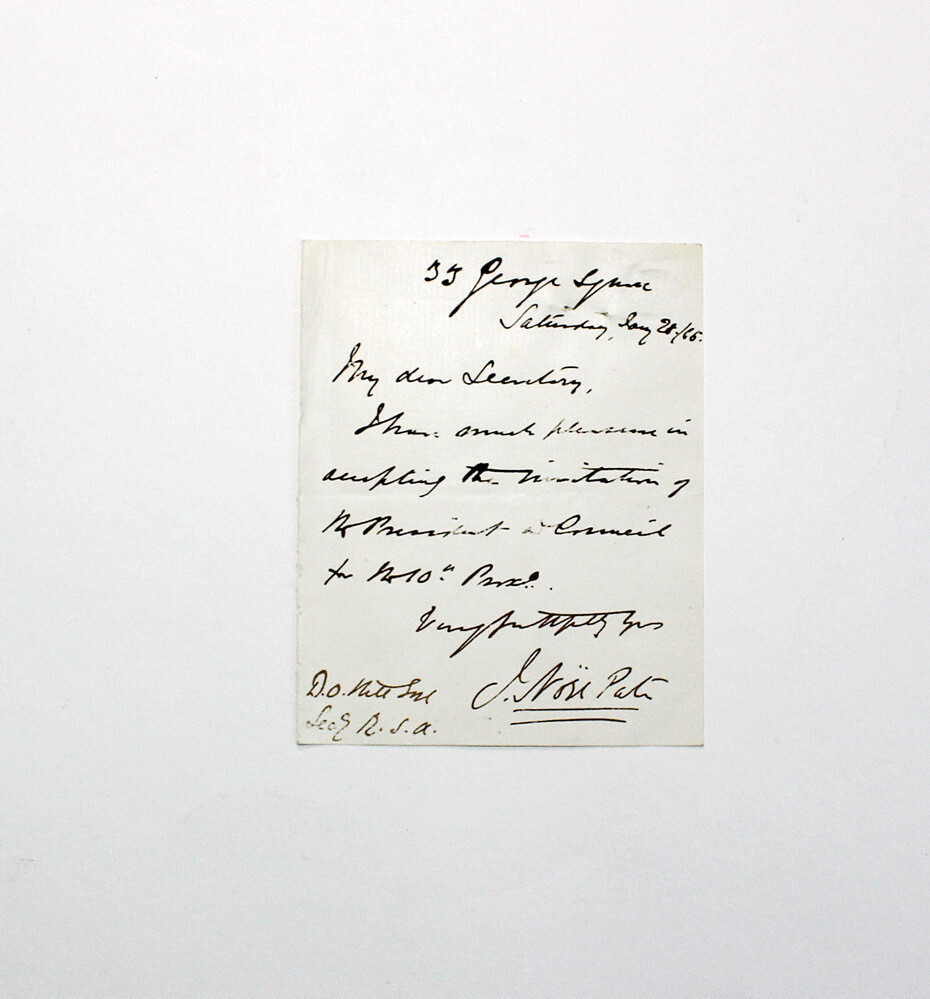 33 George Square
Saturday, Jany 28/65.
My dear Secretary,
I have much pleasure in
accepting the invitation of
the President & Council
for the 10th Proxo.
Very faithfully Yrs
J. Nöel Paton
D. O. Hill Esqr
Secy R. S. A.